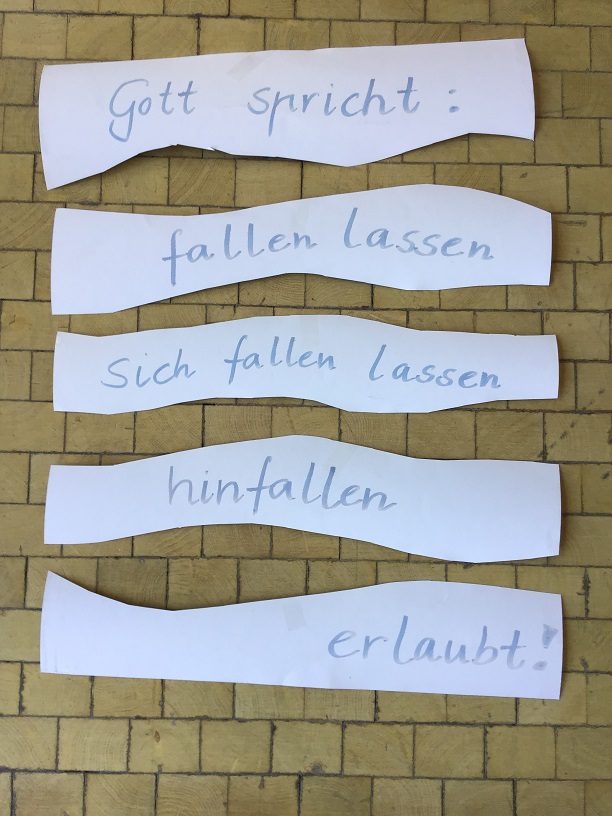 Gott spricht:
fallen lassen
sich fallen lassen
hinfallen
erlaubt!